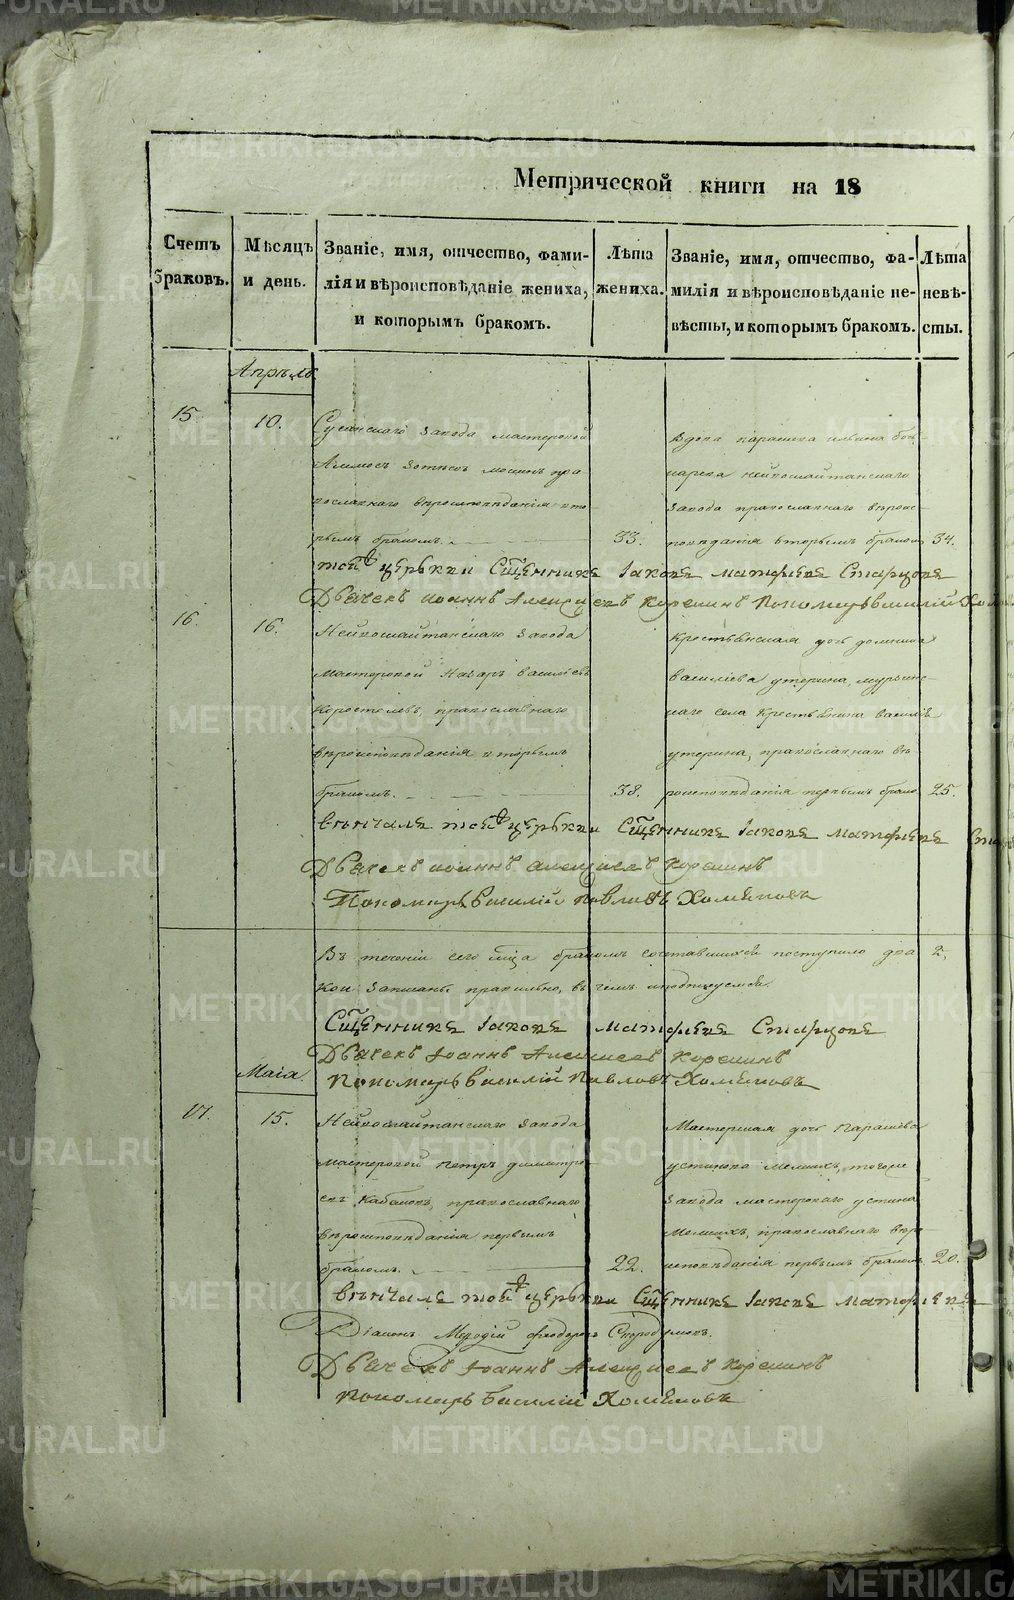 Метрической книги на 18
Счетъ браковъ.
Мѣсяцъ и день.
Званіе, имя, отчество, фами-
лія и вѣроисповѣданіе жениха,
и которымъ бракомъ.
Лѣта
жениха.
Званіе, имя, отчество, фа-
милія и вѣроисповѣданіе не-
вѣсты, и которымъ бракомъ.
Лѣта
невѣ-
сты.
Апрѣль
15
10.
завода мастеровой
пра
вославнаго вѣроисповѣданія вто
рымъ бракомъ.
33.
Вдова
завода православнаго вѣроис-
повѣданія вторымъ бракомъ
34.
той церькви Сщенникъ Іаковъ Матфіевъ Старцовъ
Дьячекъ Иоаннъ Алексиевъ Корелинъ Пономарь Василий
16.
16.
Нейвошайтанскаго завода
мастеровой Назаръ васильевъ
Коростелевъ, православнаго
вѣроисповѣданія вторымъ
бракомъ.
38.
Крестьянская дочь домника
васильева утерина, мурзинс-
каго села Крестьянина василья
утерина, православнаго вѣ
роисповѣданія первымъ брако.
25.
Вѣнчалъ той церькви Сщенникъ Іаковъ Матфіевъ
Дьячекъ иоаннъ алексиевъ Корелинъ
Пономарь Василій Павловъ Хомяковъ
Въ теченіи сего мца бракомъ сочетавшихся поступило два 2,
кои записаны правильно, въ чемъ и подписуемся.
Сщенникъ Іаковъ Матфіевъ Старцовъ
Дьячекъ Іоаннъ Алексиевъ Корелинъ
Пономарь Василій Павловъ Хомяковъ
Маія
17.
15.
Нейвошайтанскаго завода
мастеровой Петръ димитри-
евъ православнаго
вѣроисповѣданія первымъ
бракомъ.
22.
Мастерская дочь Парасковья
устинова тогоже
завода мастероваго устина
православнаго вѣро-
исповѣданія первымъ бракомъ
20.
Вѣнчалъ той церькви Сщенникъ Іаковъ Матфіевъ
Діаконъ Мефодій феодоровъ Скородумовъ.
Дьячекъ Іоаннъ Алексиевъ Корелинъ
Пономарь Василій Хомяковъ
METRIKI.GASO-URAL.RU